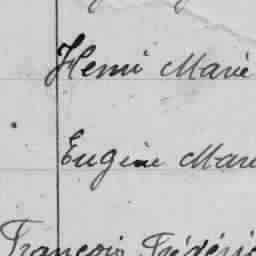 Henri Marie
Eugène Mari
François Frédéric